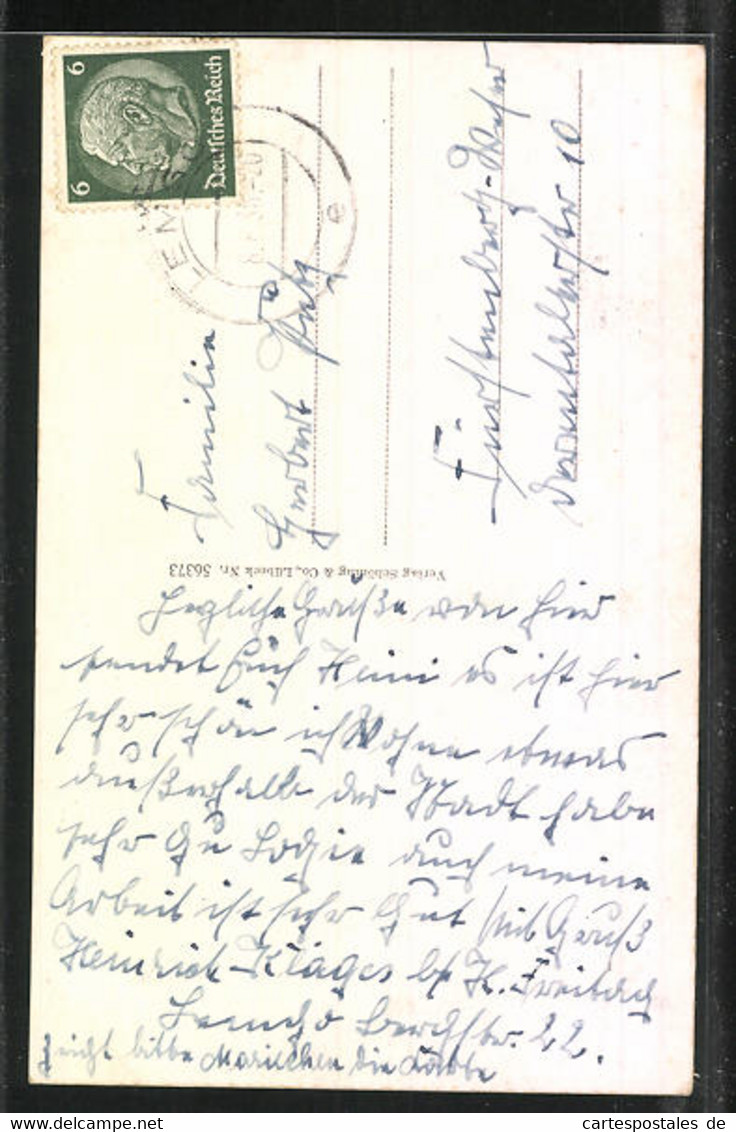 6 Deutsches Reich 6
LEM
e
Familie
Herbert
Fürstenberg-Weser
10
Verlag Schöning & Co., Lübeck Nr. 56373
Herzliche Grüße von hier
sendet Euch Heini es ist hier
sehr schön ich Wohne etwas
außerhalb der Stadt habe
sehr Gu Logie auch meine
Arbeit ist sehr Gut Mit Gruß
Heinrich Klages b/ H. Freitag
Lemgo 22.
bitte Mariechen die Karte
cartespostales de